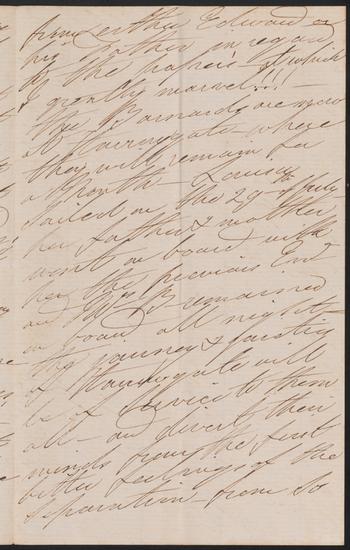 from either Edward or
his father in regard
to the papers at which
I greatly marvel!!!—
The Barnards are now
at Harrogate where
they will remain for
a Month— Louisa
sailed on the 29th of July
her father & mother
went on board with
her the previous Eve
and Mrs B remained
on board all night—
the journey &
of Harrogate will
be of service to them
all— and divert their
minds from the first
bitter feelings of the
separation— from so